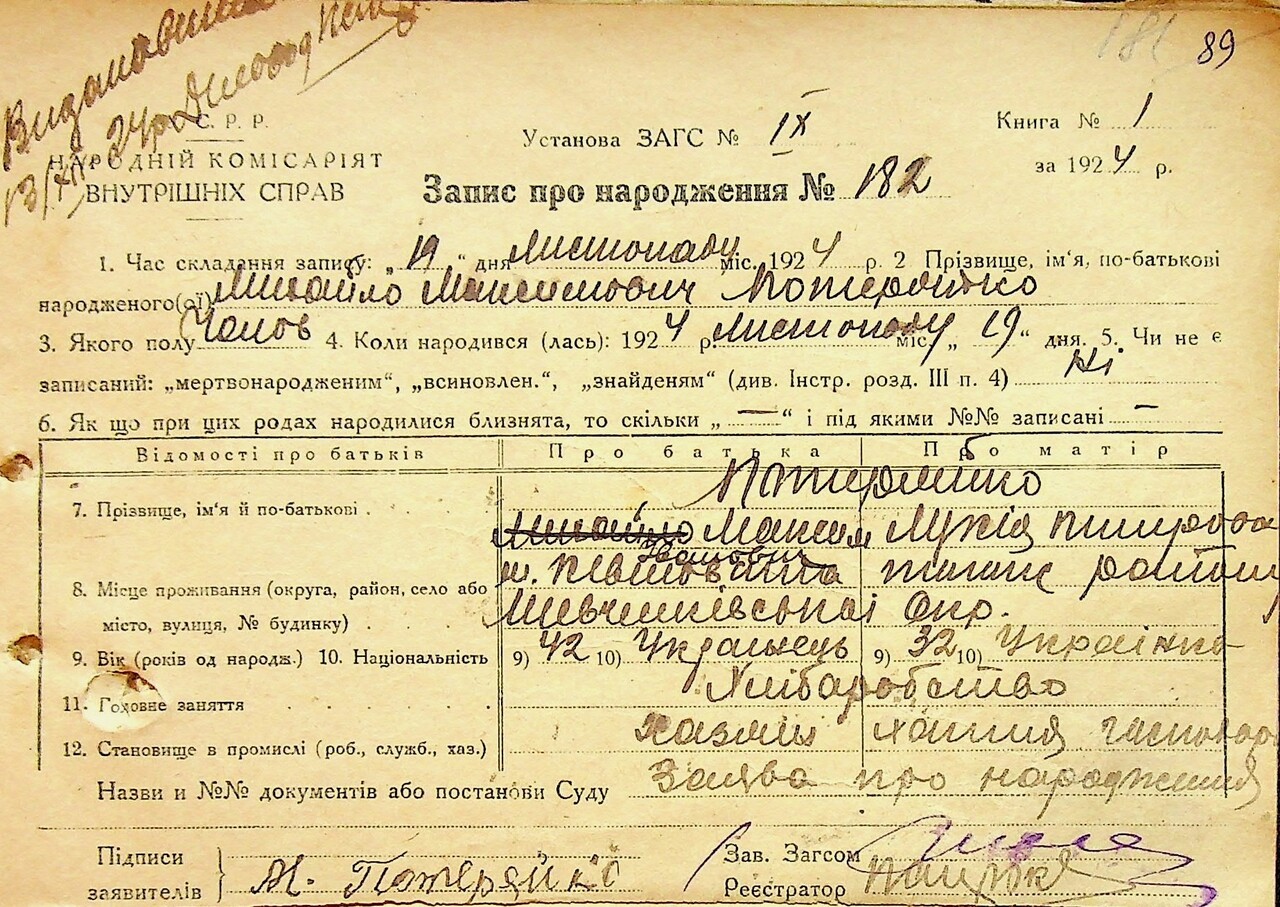 181 89
У. С. Р. Р.
НАРОДНІЙ КОМІСАРІЯТ
ВНУТРІШНІХ СПРАВ
Установа ЗАГС № IX
Книга № 1
за 1924 р.
Запис про народження № 182
1. Час складання запису: „19“ дня Листопаду міс. 1924 р. 2 Прізвище, ім'я, по-батькові
народженого(ої) Михайло Максимович Потерайко
3. Якого полу Чолов 4. Коли народився (лась): 1924 р. Листопаду міс. „19“ дня. 5. Чи не є
записаний: „мертвонародженим“, „всиновлен.“, „знайденям“ (див. Інстр. розд. III п. 4) Ні
6. Як що при цих родах народилися близнята, то скільки „—“ і під якими №№ записані —
Відомості про батьків Про батька Про матір
Потерайко
7. Прізвище, ім'я й по-батькові Михайло Максим Лукія
Іванович
8. Місце проживання (округа, район, село або
місто, вулиця, № будинку) Шевченківської Окр.
9. Вік (років од народж.) 10. Національність 9) 42 10) Українець 9) 32 10) Українка
11. Головне заняття Хліборобство
12. Становище в промислі (роб., служб., хаз.) хазяїн
Назви и №№ документів або постанови Суду Заява про народження
Підписи
заявителів М. Потерайко
Зав. Загсом
Реєстратор